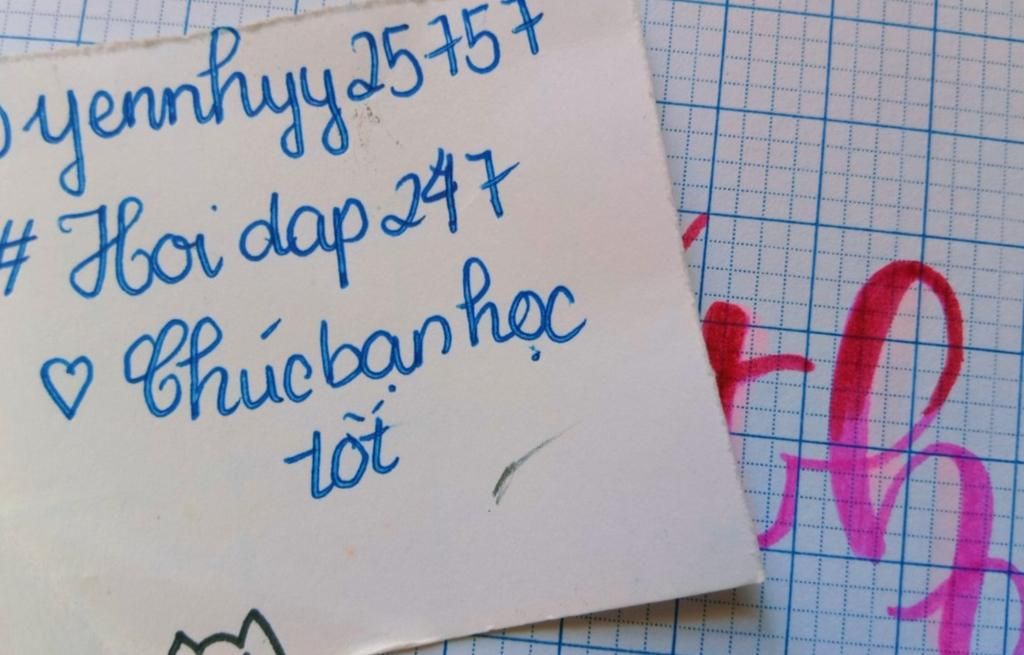 yennhyy25757
# Hoi dap 247
♡ Chúc bạn học
tốt
h